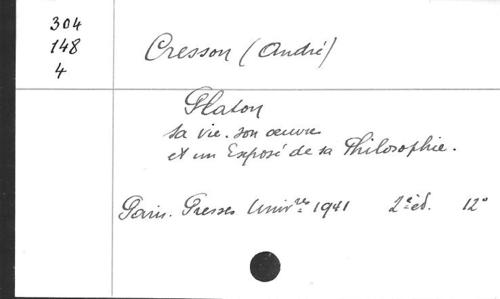 304
148
4
Cresson (André)
Platon
sa vie. son œuvre
et un Exposé de sa Philosophie.
Paris. Presses Univ^res 1941 2^e éd. 12°